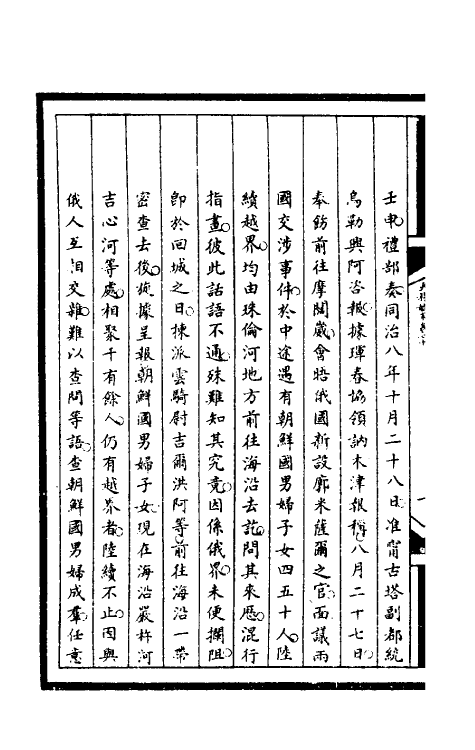 壬申禮部奏同治八年十月二十八日准甯古塔副都統
烏勒興阿咨報據琿春協領訥木津報稱八月二十七日
奉飭前往摩闊崴會晤俄國新設廓米薩爾之官面議兩
國交涉事件於中途遇有朝鮮國男婦子女四五十人陸
續越界均由珠倫河地方前往海沿去訖問其來歷混行
指畫彼此話語不通殊難知其究竟因係俄界未便攔阻
即於回城之日揀派雲騎尉吉爾洪阿等前往海沿一帶
密查去後旋據呈報朝鮮國男婦子女現在海沿巖杵河
吉心河等處相聚千有餘人仍有越界者陸續不止因與
俄人互相交雜難以查問等語查朝鮮國男婦成羣任意